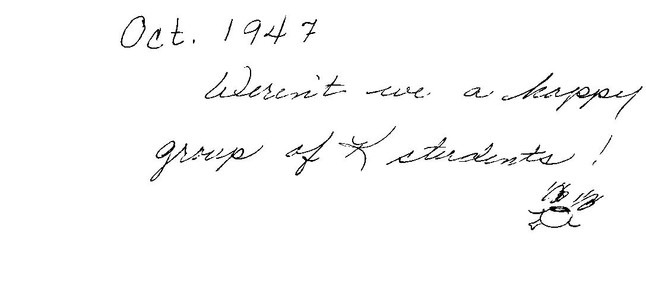 Oct. 1947
Weren't we a happy
group of K students!